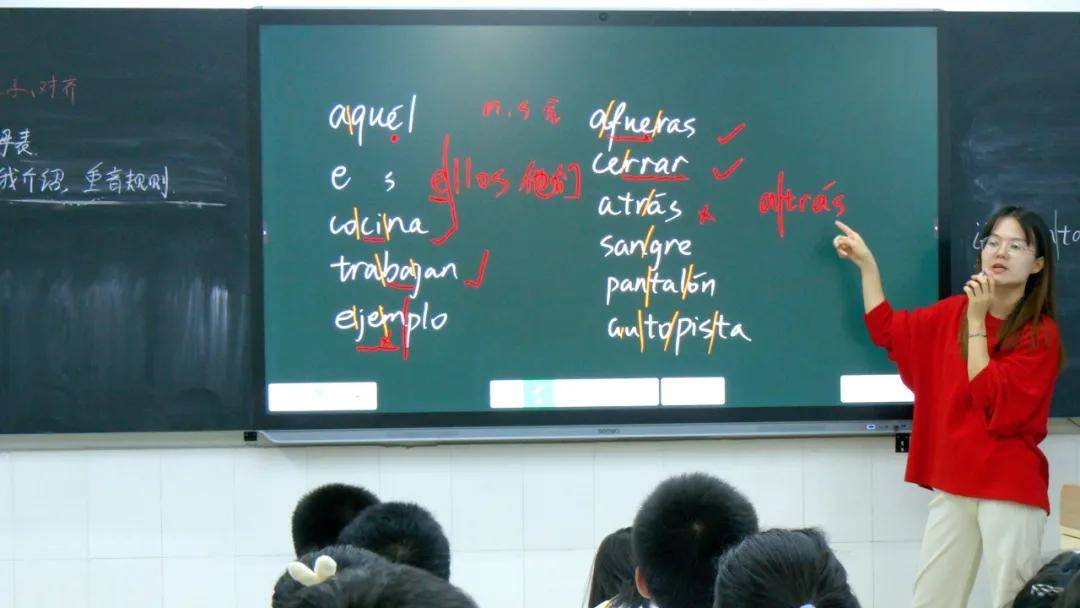 子、对齐
母表
我介绍，重音规则
aquél
e s
cocina
trabajan
ejemplo
n,s 元
ellos 他们
afueras
cerrar
atrás
sangre
pantalón
autopista
atrás